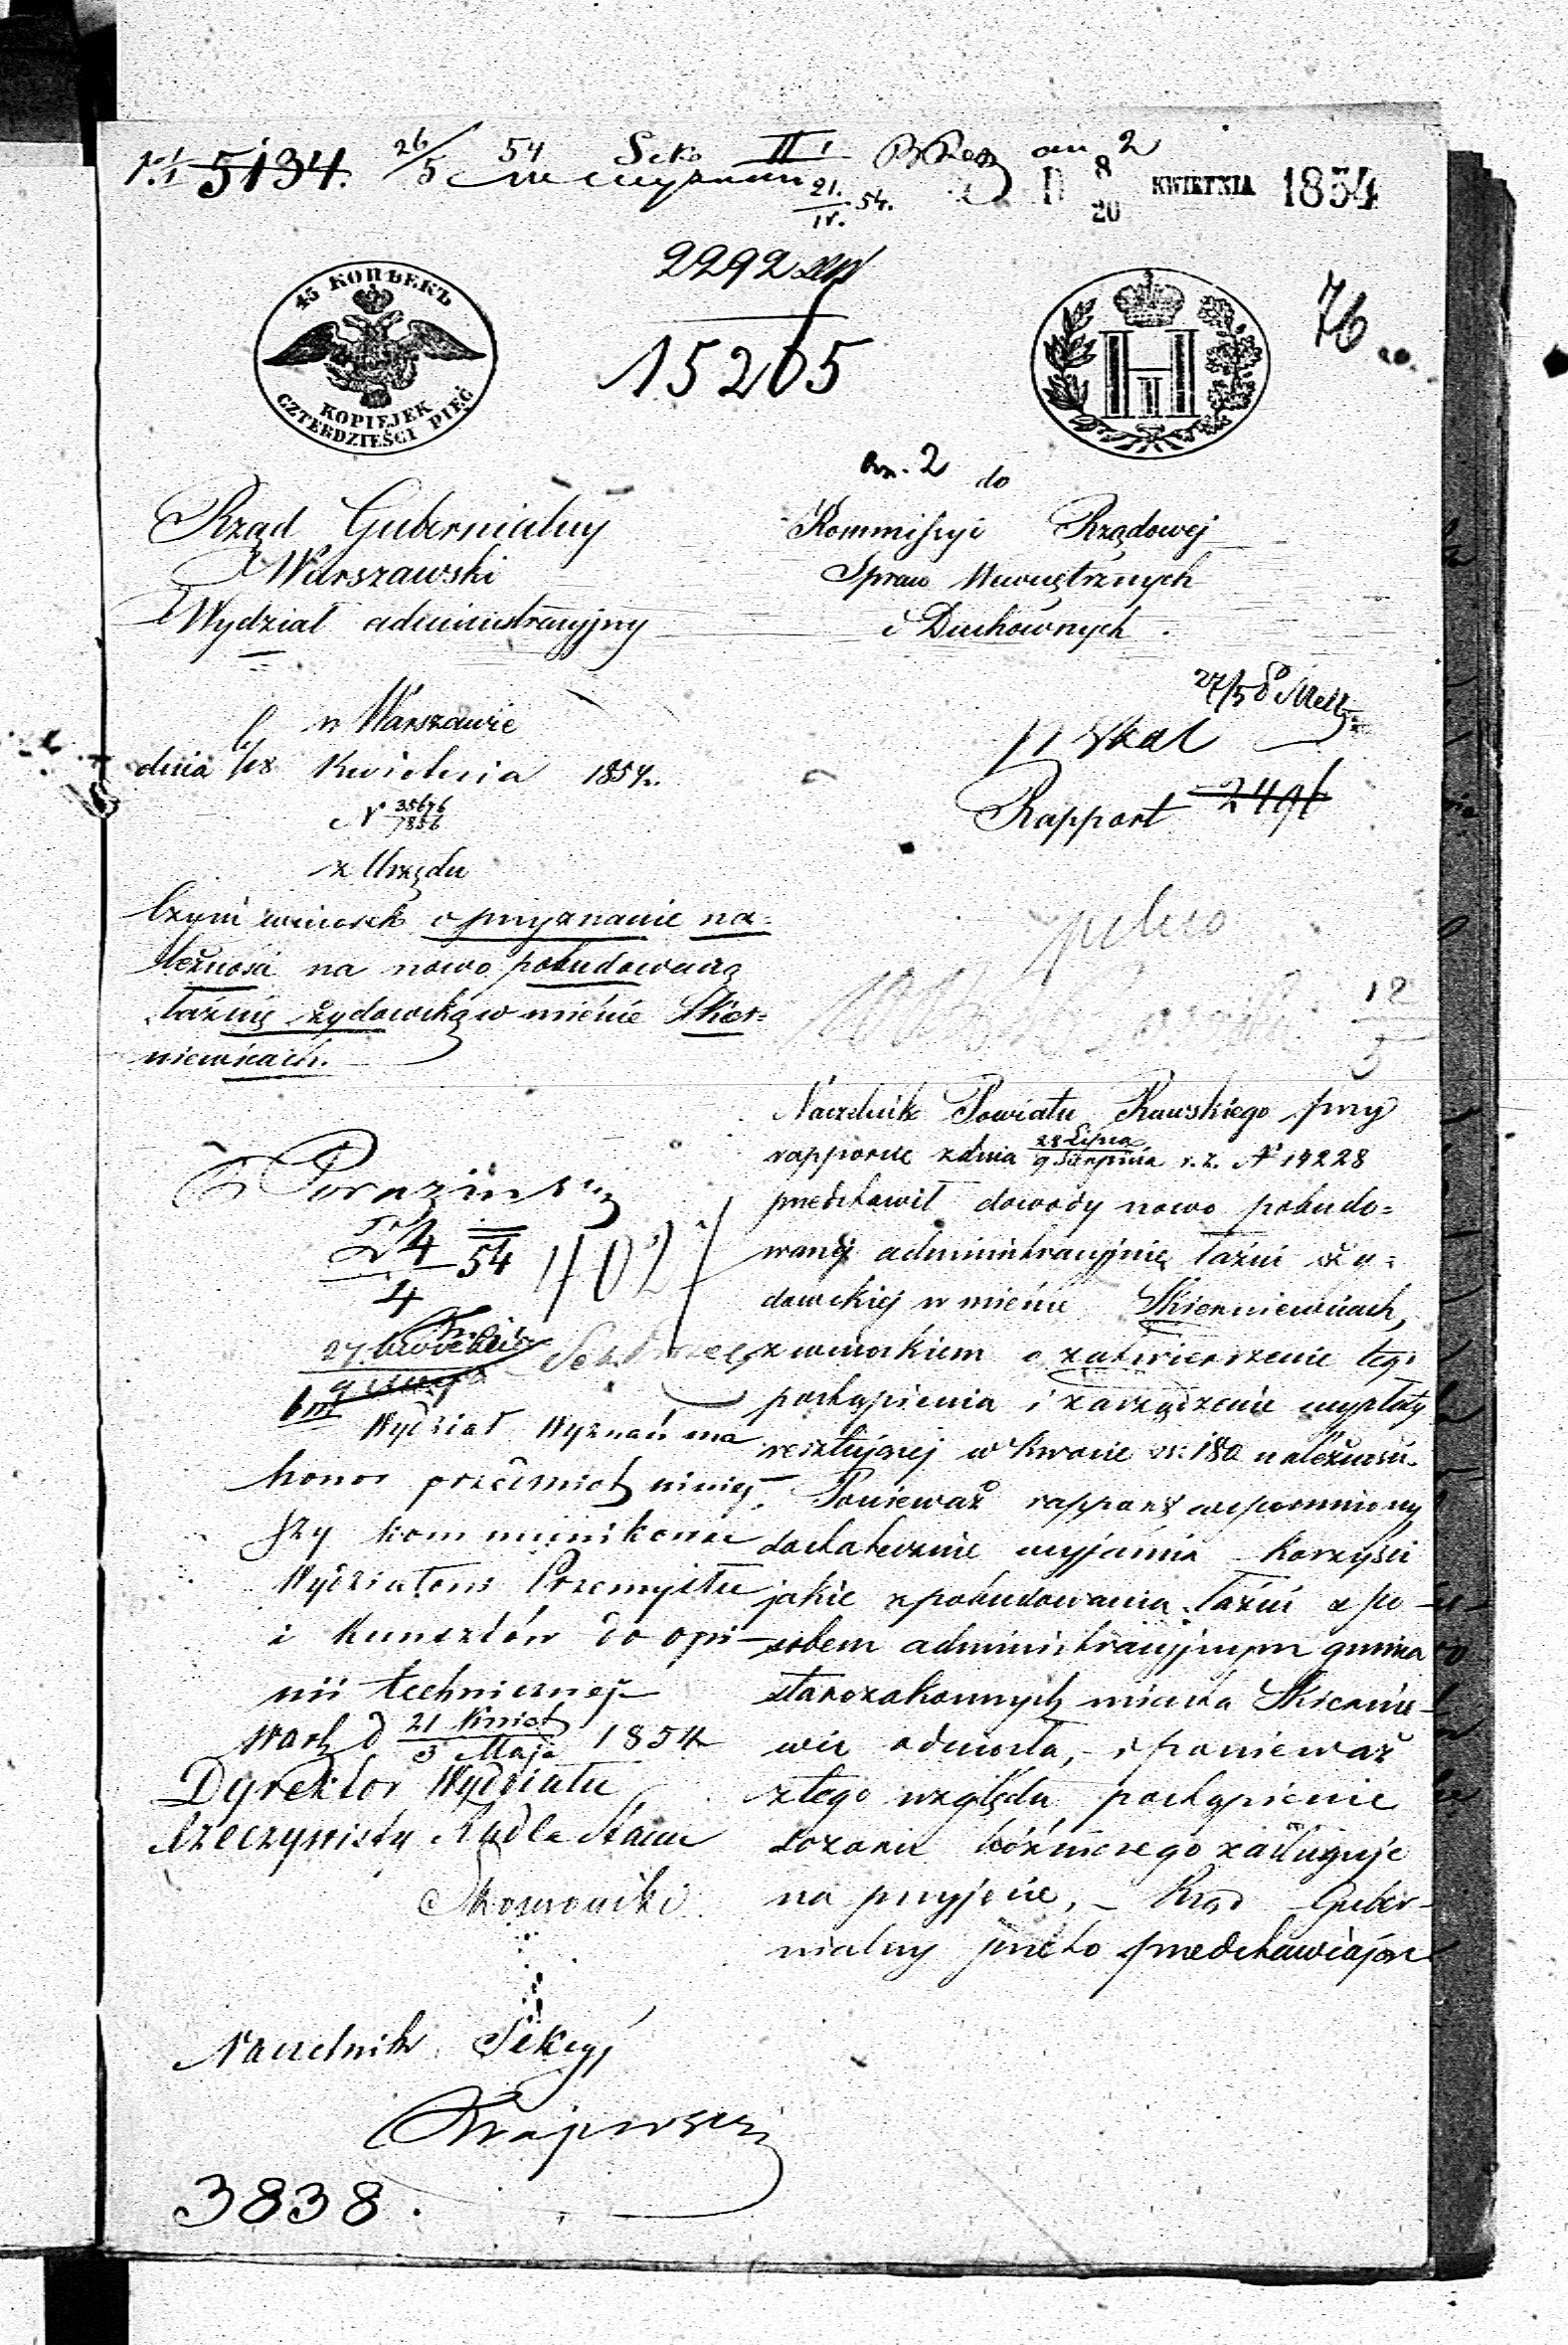 5134. 26/5 54
21./IV. 54.
8/20 KWIETNIA 1854
2292
15265
76
45 КОПѢЕКЪ
KOPIEJEK
CZTERDZIEŚCI PIĘĆ
an. 2 do
Rząd Gubernialny
Warszawski
Wydział administracyjny
Kommissyi Rządowej
Spraw Wewnętrznych
i Duchownych.
w Warszawie
dnia 6/18 Kwietnia 1854.
N 35676/7856
z Urzędu
Rapport
Czyni wniosek o przyznanie na=
leżności na nowo pobudowaną
łaźnię żydowską w mieście Skier=
niewicach.
12/5
Naczelnik Powiatu Rawskiego przy
rapporcie z dnia 28 Lipca/9 Sierpnia r. z. N 14228
przedstawił dowody nowo pobudo=
wanej administracyjnie łaźni ży=
dowskiej w mieście Skierniewicach,
z wnioskiem o zatwierdzenie tego
postąpienia i zarządzenie wypłaty
resztującej w kwocie rs: 180 należności.
Ponieważ rapport wspomniony
dostatecznie wyjaśnia korzyści
jakie z pobudowania łaźni spo-
sobem administracyjnym gmina
starozakonnych miasta Skiernie-
wic odniosła, i ponieważ
z tego względu postąpienie
dozoru bóżniczego zasługuje
na przyjęcie, – Rząd Guber-
nialny przeto przedstawiając
24/4 54
4021
Wydział Wyznań ma
honor przedmiot niniej
szy kommunikować
Wydziałowi Przemysłu
i Kunsztów do opi-
nii technicznej
Warsz d 21 Kwiet/3 Maja 1854
Dyrektor Wydziału
Rzeczywisty Radca Stanu
Naczelnik Sekcyi
Krajewski
3838.